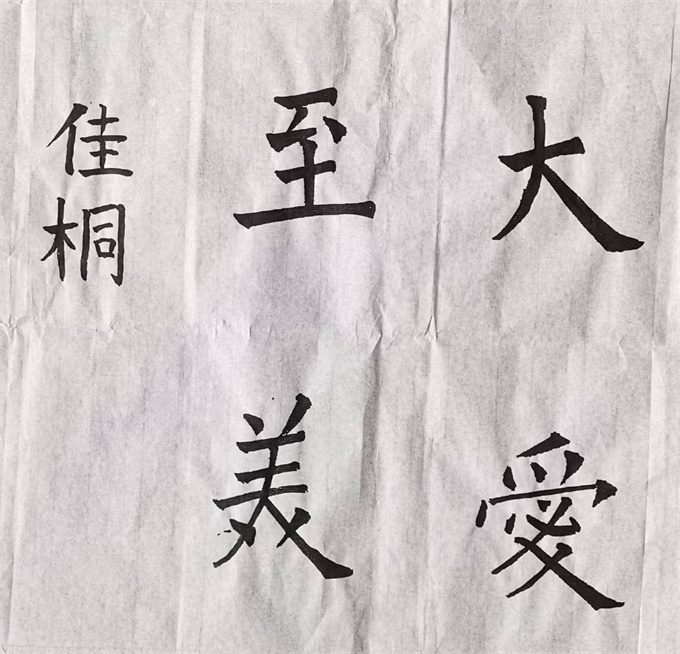 大愛
至美
佳桐